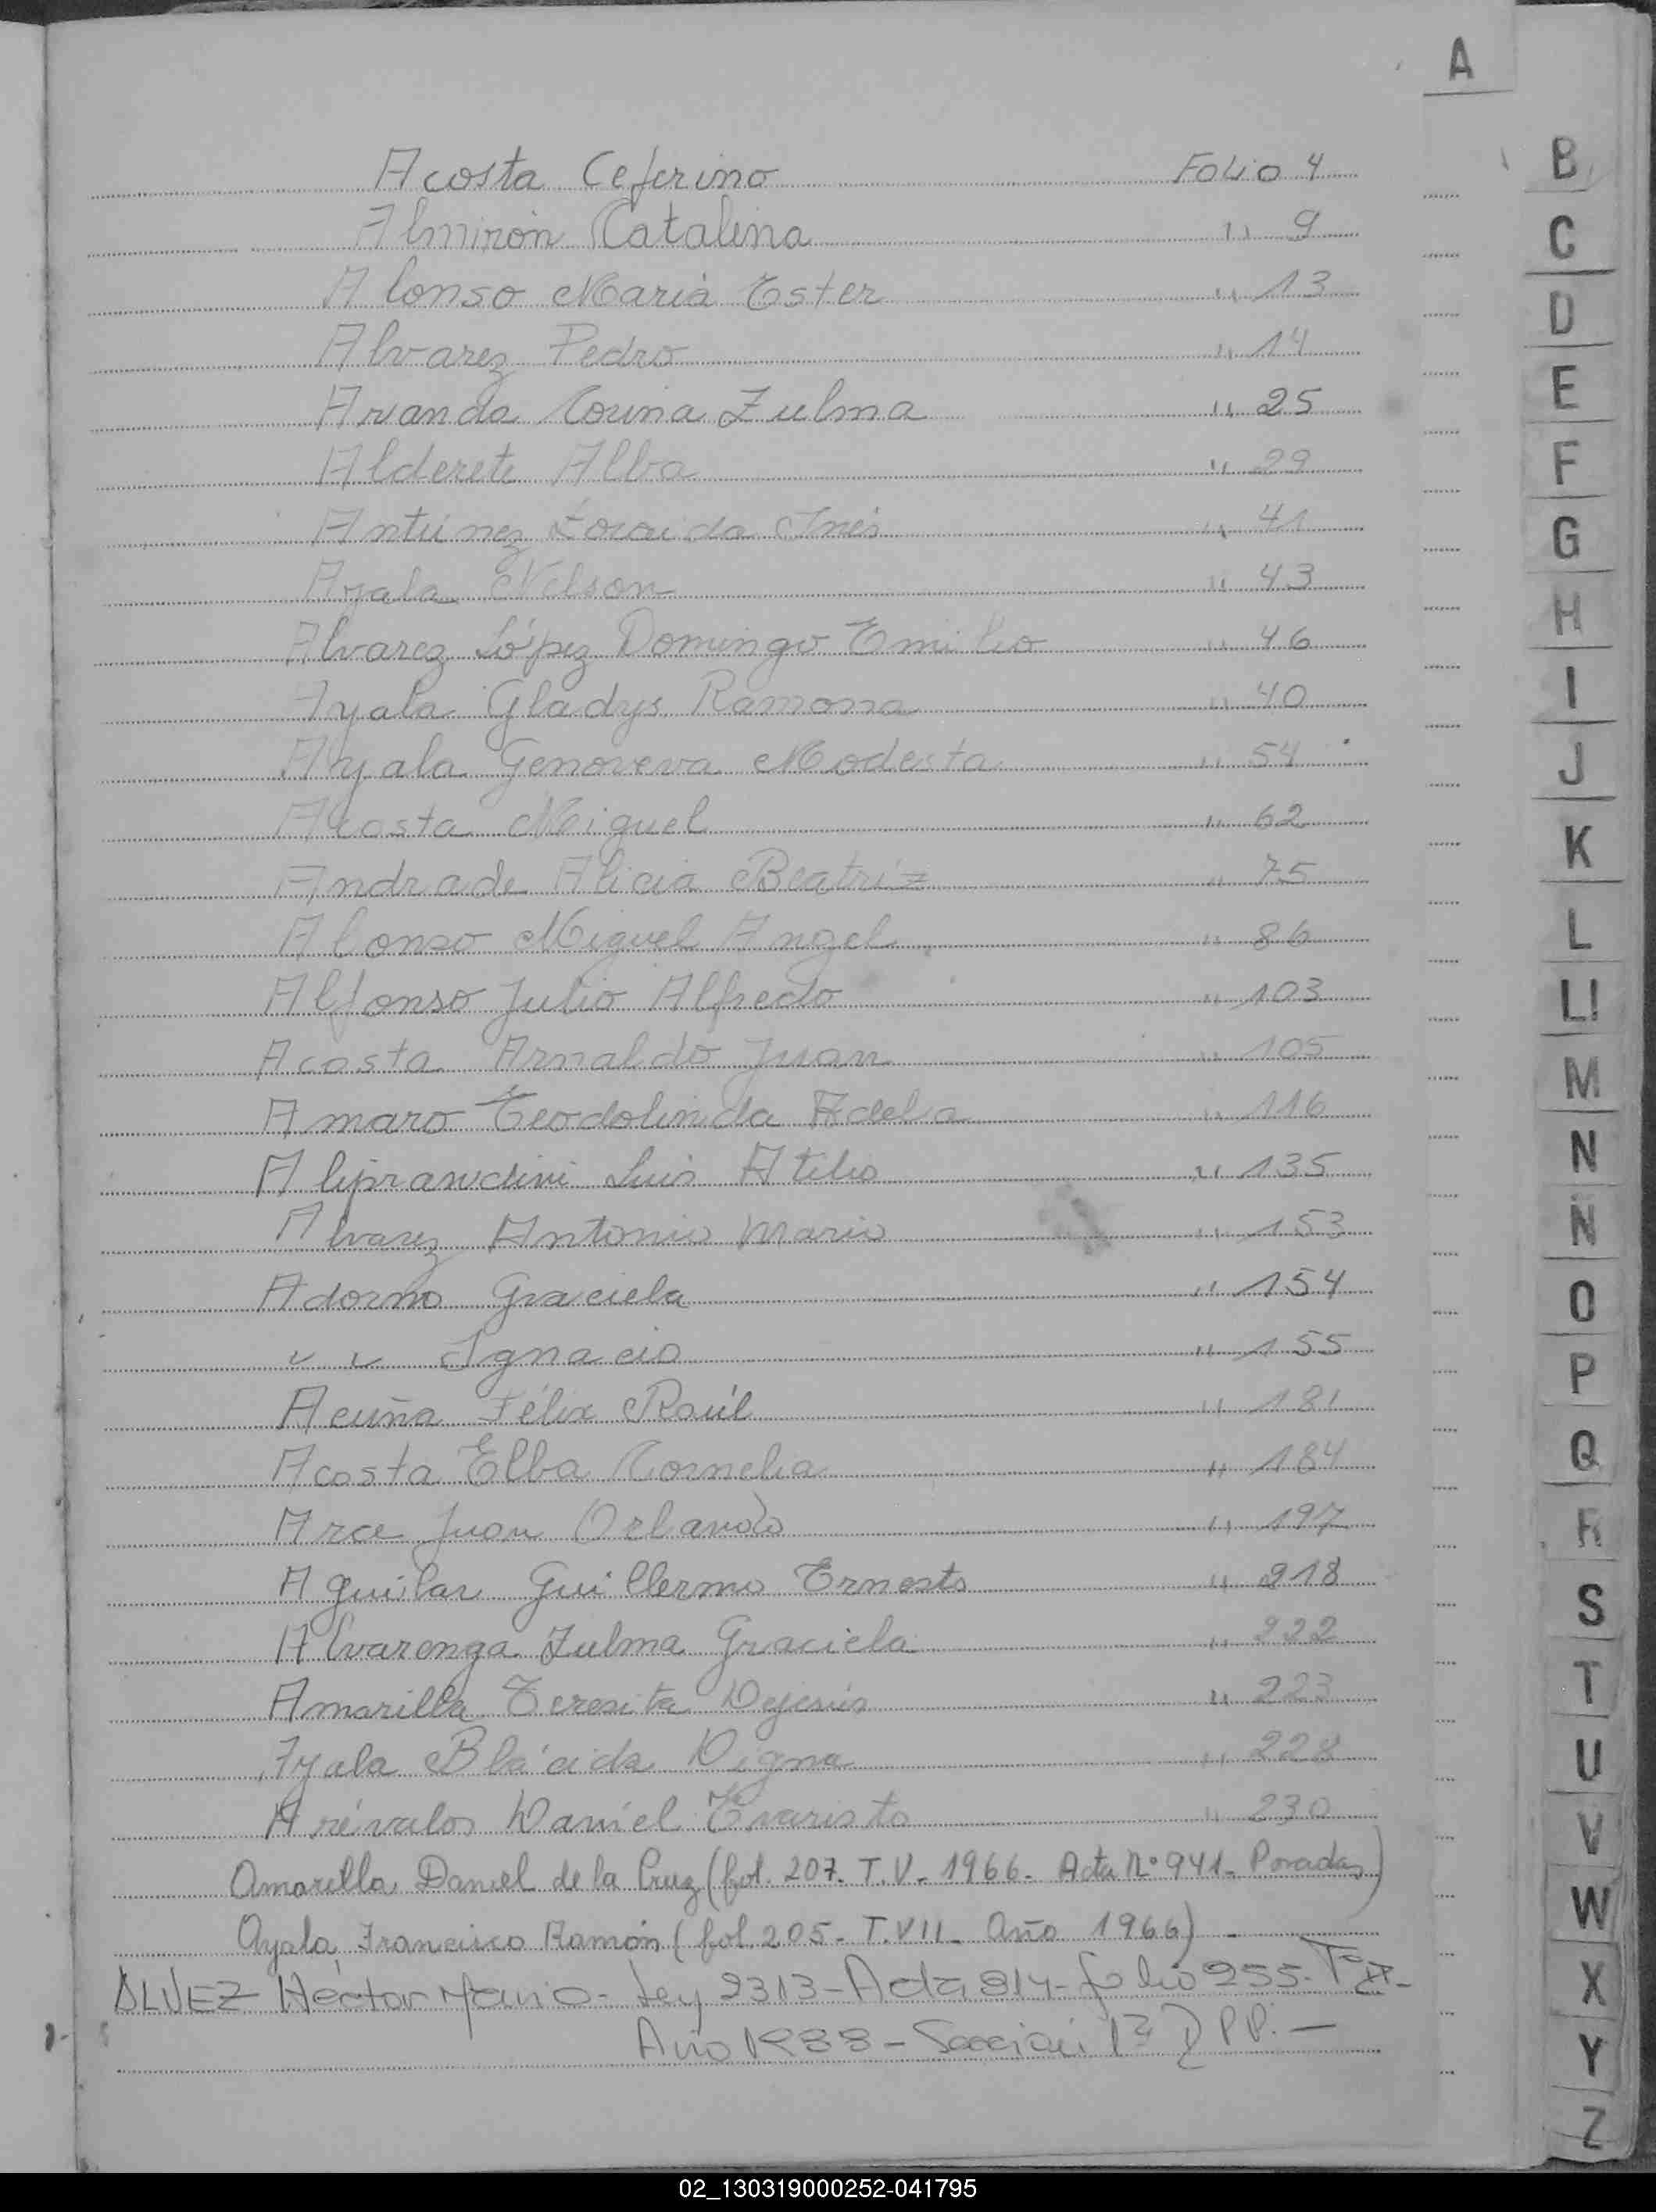 A
Acosta Ceferino Folio 4
Almirón Catalina " 9
Alonso María Ester " 13
Alvarez Pedro " 14
Aranda Corina Zulma " 25
Alderete Alba " 29
Antúnez Inés " 41
Ayala Nelson " 43
Alvarez López Domingo Emilio " 46
Ayala Gladys Ramona " 40
Ayala Genoveva Modesta " 54
Acosta Miguel " 62
Andrade Alicia Beatriz " 75
Alonso Miguel Angel " 86
Alfonso Julio Alfredo " 103
Acosta Arnaldo Juan " 105
Amaro Teodolinda Adela " 116
Aliprandini Luis Atilio " 135
Alvarez Antonio Mario " 153
Adorno Graciela " 154
" " Ignacio " 155
Acuña Félix Raúl " 181
Acosta Elba Cornelia " 184
Arce Juan Orlando " 197
Aguilar Guillermo Ernesto " 218
Alvarenga Zulma Graciela " 222
Amarilla Teresita Dejesús " 223
Ayala Blácida Digna " 228
Arévalos Daniel Evaristo " 230
Amarilla Daniel de la Cruz (fol. 207. T.V. 1966. Acta Nº 941. Posadas)
Ayala Francisco Ramón (fol. 205. T.VII. Año 1966)
ALVEZ Héctor Mario - Ley 2313 - Acta 814 - folio 255 -
Año 1988 - Sección 1ª
B
C
D
E
F
G
H
I
J
K
L
Ll
M
N
Ñ
O
P
Q
R
S
T
U
V
W
X
Y
Z
02_130319000252-041795